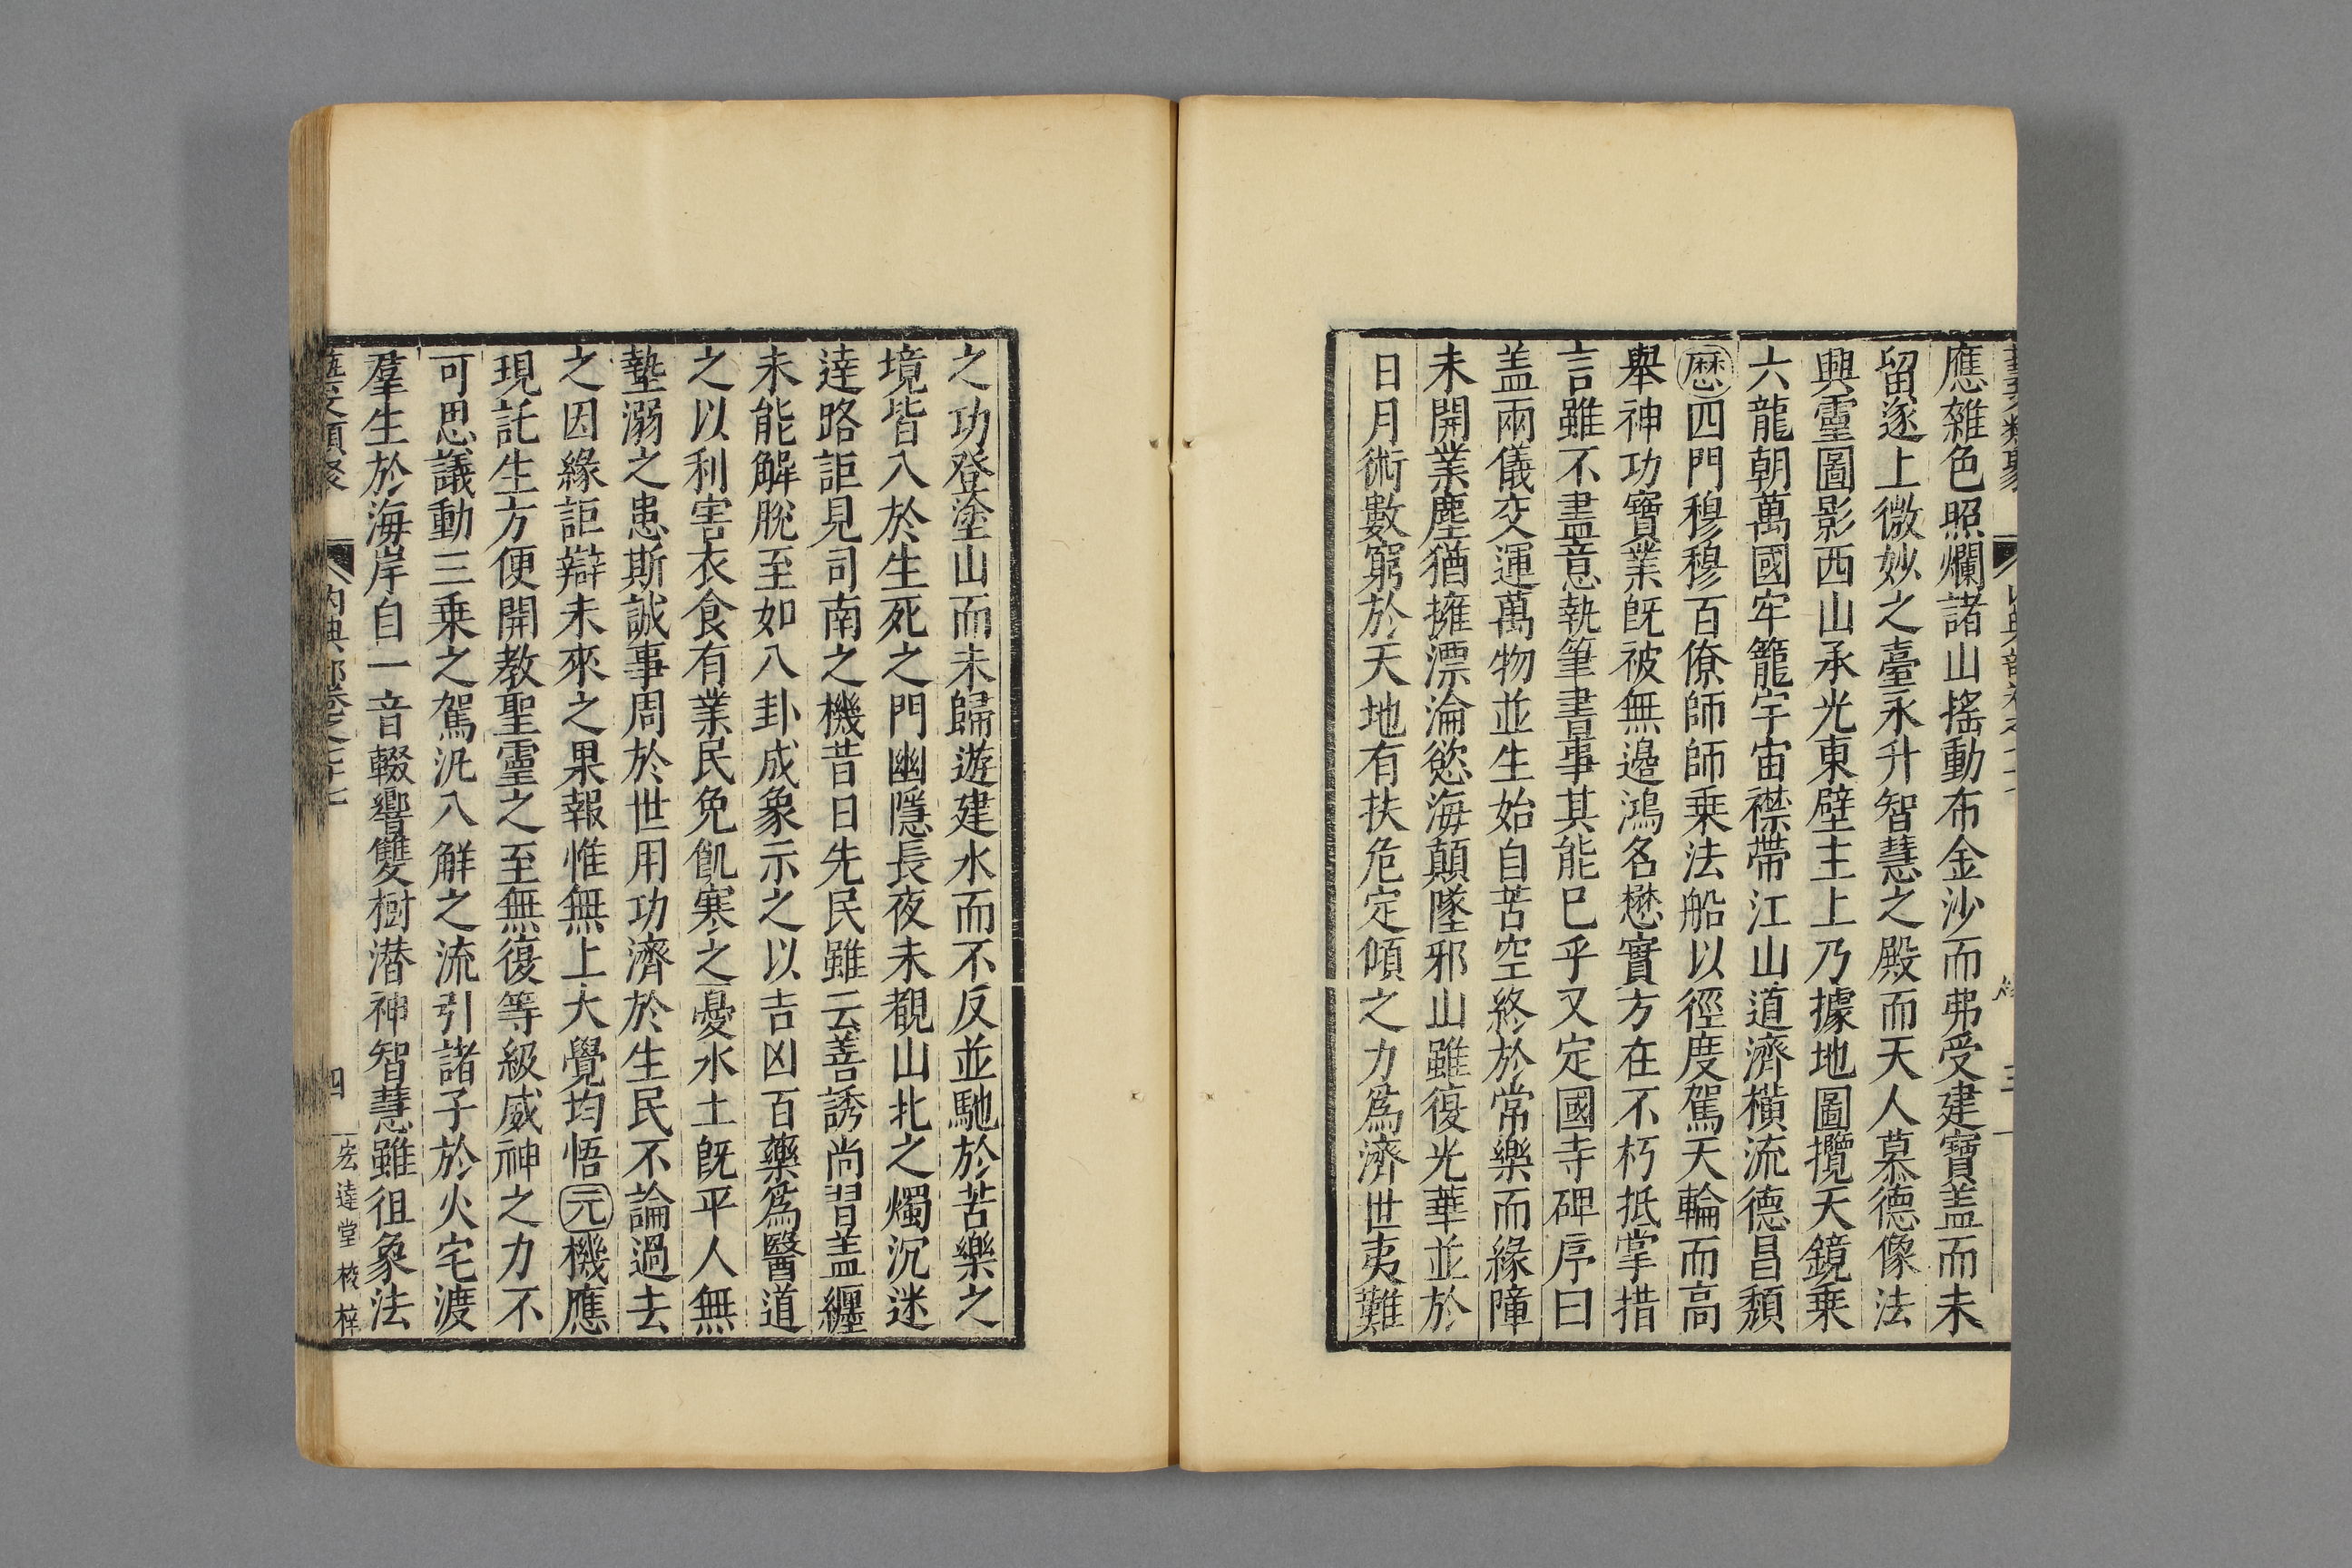 藝文類聚
應雜色照爛諸山搖動布金沙而弗受建寶盖而未
留遂上微妙之臺永升智慧之殿而天人慕德像法
興靈圖影西山承光東壁主上乃據地圖攬天鏡乗
六龍朝萬國牢籠宇宙襟帶江山道濟橫流德昌頽
厯四門穆穆百僚師師乗法船以徑度駕天輪而高
舉神功寶業旣被無邉鴻名懋實方在不朽抵掌措
言雖不盡意執筆書事其能巳乎又定國寺碑序曰
盖兩儀交運萬物並生始自苦空終於常樂而緣障
未開業塵猶擁漂淪慾海顛墜邪山雖復光華並於
日月術數窮於天地有扶危定傾之力爲濟世夷難
之功登塗山而未歸遊建水而不反並馳於苦樂之
境皆入於生死之門幽隱長夜未覩山北之燭沉迷
逹路詎見司南之機昔日先民雖云善誘尚習盖纒
未能解脫至如八卦成象示之以吉凶百藥爲醫道
之以利害衣食有業民免飢寒之憂水土旣平人無
墊溺之患斯誠事周於世用功濟於生民不論過去
之因緣詎辯未來之果報惟無上大覺均悟元機應
現託生方便開教聖靈之至無復等級威神之力不
可思議動三乗之駕汎八解之流引諸子於火宅渡
羣生於海岸自一音輟響雙樹潜神智慧雖徂象法
藝文類聚
内典部卷之七十七
四
宏逹堂校梓